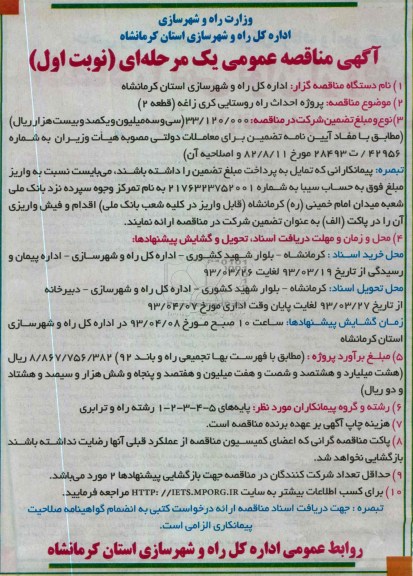 وزارت راه و شهرسازی
اداره کل راه و شهرسازی استان کرمانشاه
آگهی مناقصه عمومی یک مرحله‌ای (نوبت اول)
۱) نام دستگاه مناقصه گزار: اداره کل راه و شهرسازی استان کرمانشاه
۲) موضوع مناقصه: پروژه احداث راه روستایی کری زاغه (قطعه ۲)
۳) نوع و مبلغ تضمین شرکت در مناقصه: ۳۳/۱۲۰/۰۰۰ (سی و سه میلیون و یکصد و بیست هزار ریال)
(مطابق با مفاد آیین نامه تضمین برای معاملات دولتی مصوبه هیأت وزیران به شماره
۴۲۹۵۶ / ت ۲۸۴۹۳ مورخ ۸۲/۸/۱۱ و اصلاحیه آن)
تبصره: پیمانکارانی که تمایل به پرداخت مبلغ تضمین را داشته باشند، می‌بایست نسبت به واریز
مبلغ فوق به حساب سیبا به شماره ۲۱۷۶۳۲۳۷۵۲۰۰۱ به نام تمرکز وجوه سپرده نزد بانک ملی
شعبه میدان امام خمینی (ره) کرمانشاه (قابل واریز در کلیه شعب بانک ملی) اقدام و فیش واریزی
آن را در پاکت (الف) به عنوان تضمین شرکت در مناقصه ارائه نمایند.
۴) محل و زمان و مهلت دریافت اسناد، تحویل و گشایش پیشنهادها:
محل خرید اسناد : کرمانشاه - بلوار شهید کشوری - اداره کل راه و شهرسازی - اداره پیمان و
رسیدگی از تاریخ ۹۳/۰۳/۱۹ لغایت ۹۳/۰۳/۲۶
محل تحویل اسناد: کرمانشاه - بلوار شهید کشوری - اداره کل راه و شهرسازی - دبیرخانه
از تاریخ ۹۳/۰۳/۲۷ لغایت پایان وقت اداری مورخ ۹۳/۰۴/۰۷
زمان گشایش پیشنهادها: ساعت ۱۰ صبح مورخ ۹۳/۰۴/۰۸ در اداره کل راه و شهرسازی
استان کرمانشاه
۵) مبلغ برآورد پروژه : (مطابق با فهرست بها تجمیعی راه و باند ۹۲) ۸/۸۶۷/۷۵۶/۳۸۲ ریال
(هشت میلیارد و هشتصد و شصت و هفت میلیون و هفتصد و پنجاه و شش هزار و سیصد و هشتاد
و دو ریال)
۶) رشته و گروه پیمانکاران مورد نظر: پایه‌های ۵-۴-۳-۲-۱ رشته راه و ترابری
۷) هزینه چاپ آگهی بر عهده برنده مناقصه است.
۸) پاکت مناقصه گرانی که اعضای کمیسیون مناقصه از عملکرد قبلی آنها رضایت نداشته باشند
بازگشایی نخواهد شد.
۹) حداقل تعداد شرکت کنندگان در مناقصه جهت بازگشایی پیشنهادها ۲ مورد می‌باشد.
۱۰) برای کسب اطلاعات بیشتر به سایت HTTP: //IETS.MPORG.IR مراجعه فرمایید.
تبصره : جهت دریافت اسناد مناقصه ارائه درخواست کتبی به انضمام گواهینامه صلاحیت
پیمانکاری الزامی است.
روابط عمومی اداره کل راه و شهرسازی استان کرمانشاه